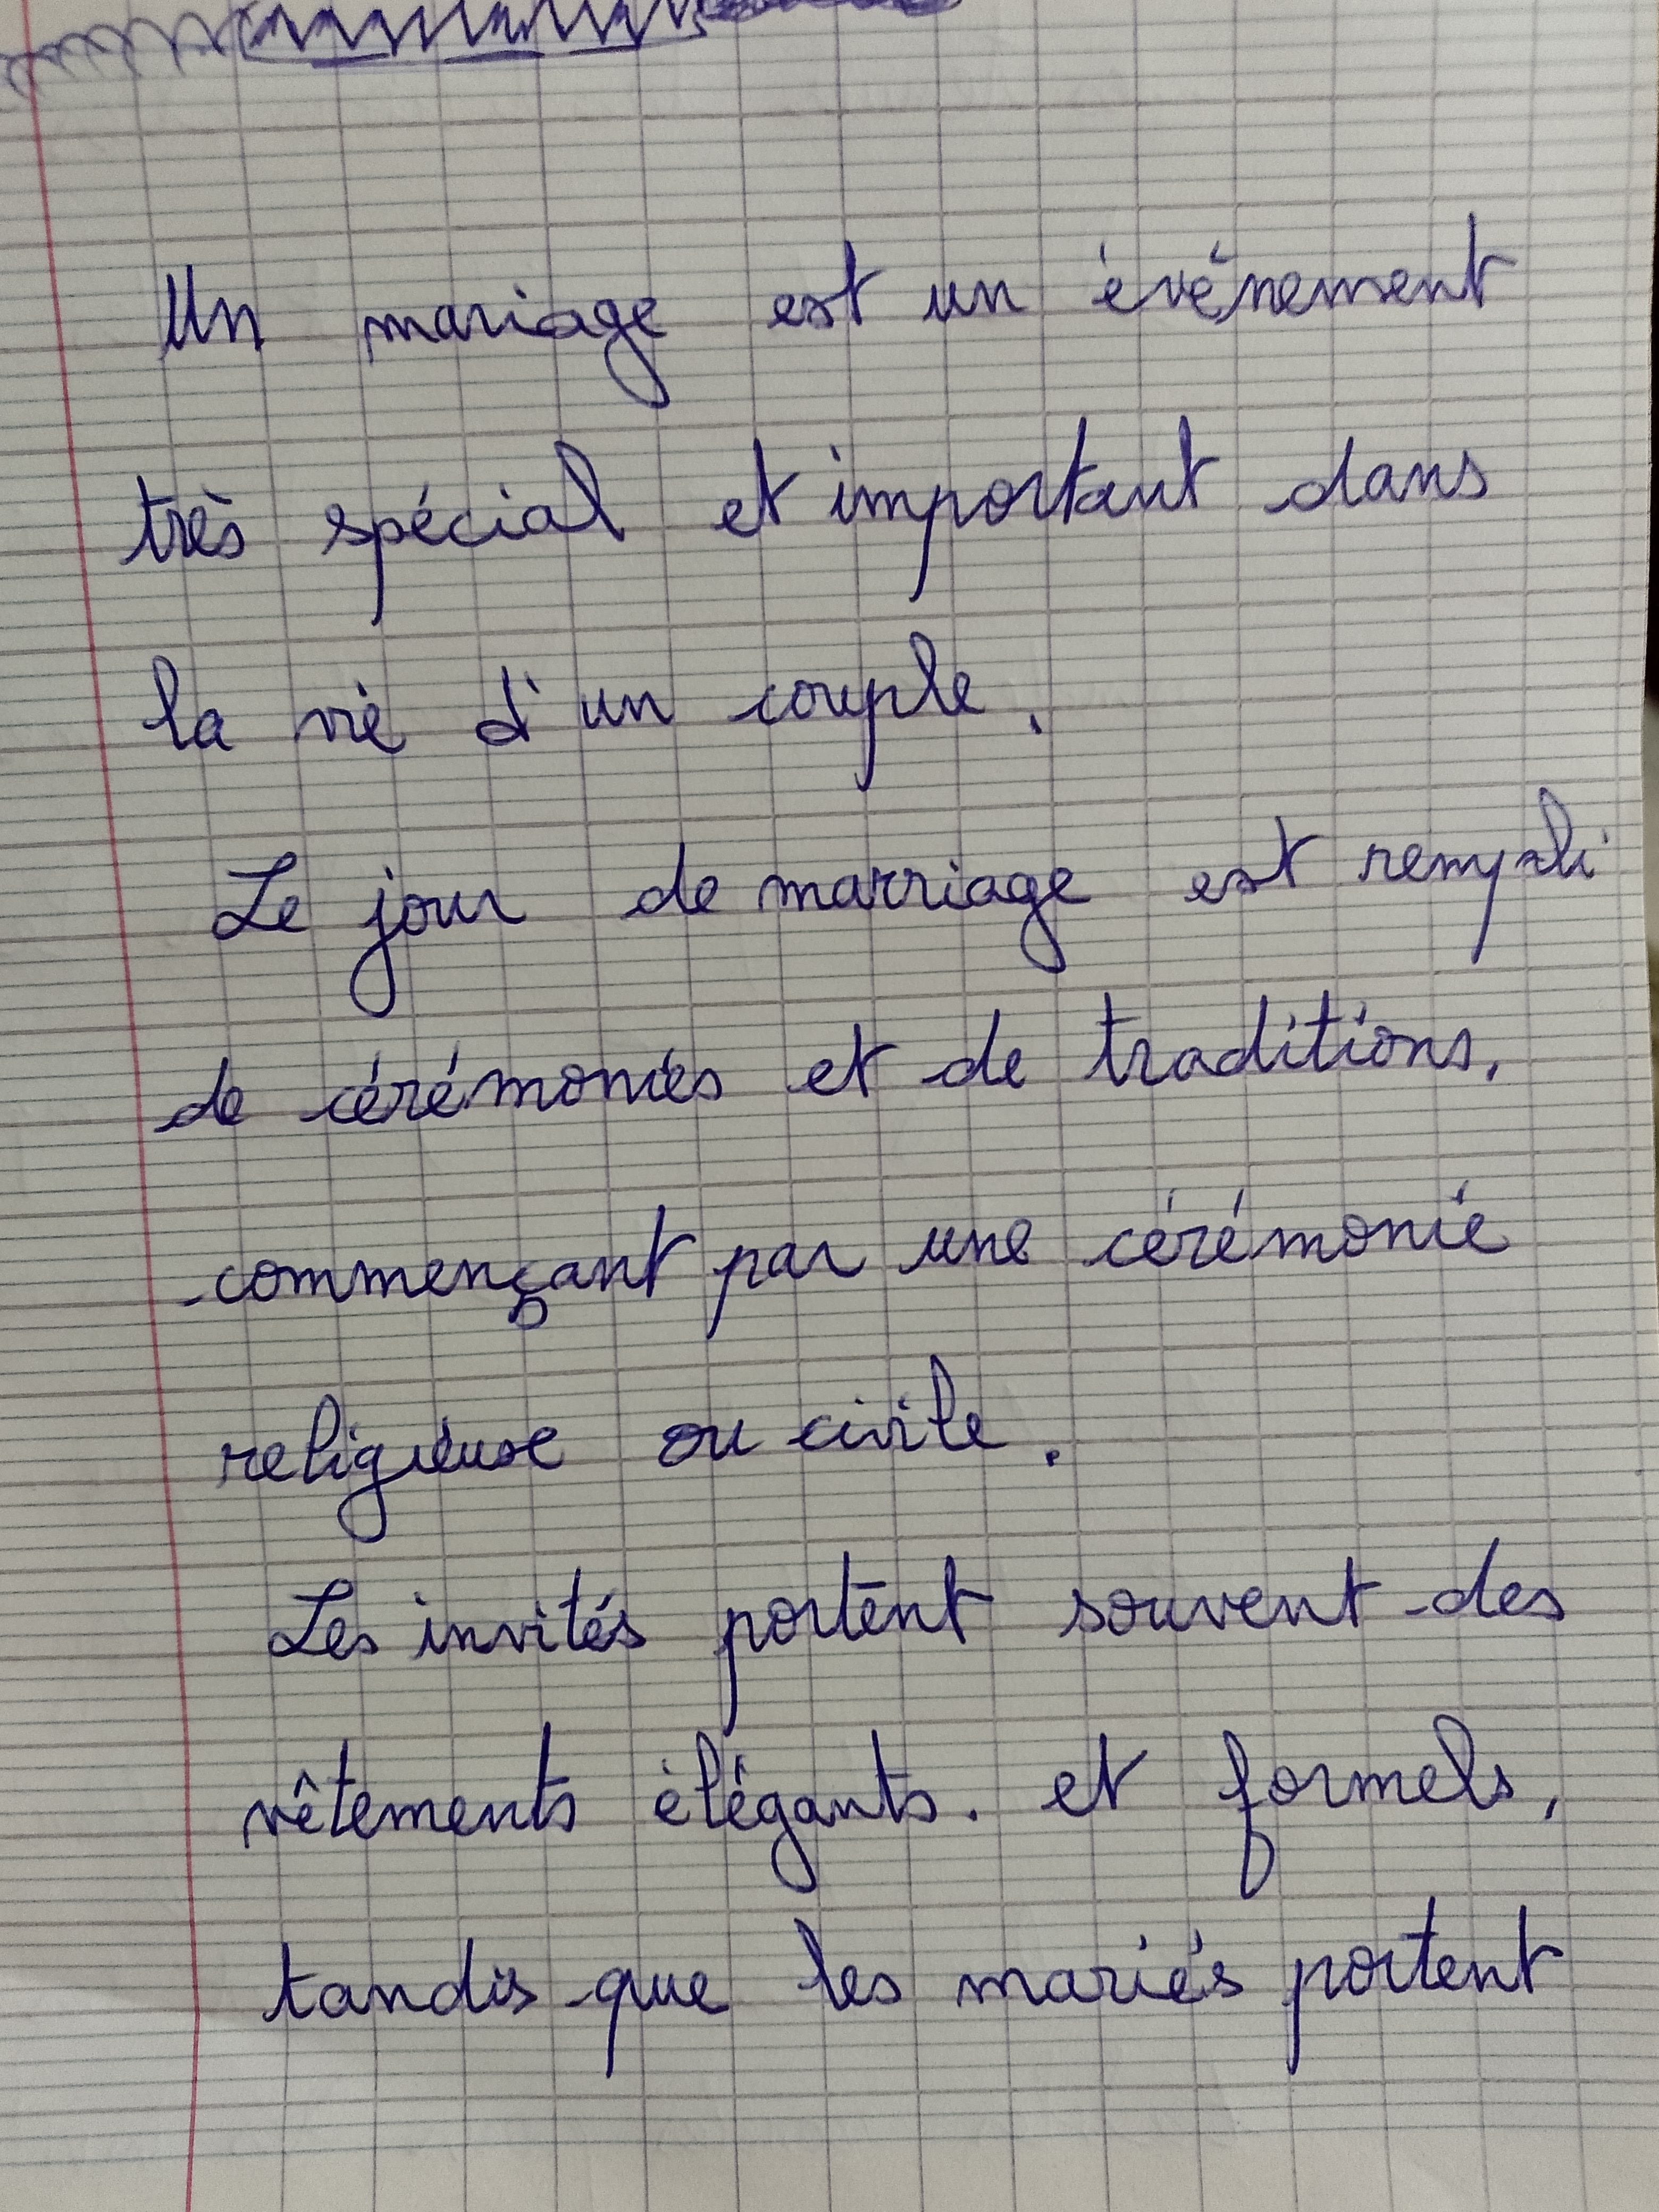 Un mariage est un événement
très spécial et important dans
la vie d'un couple.
Le jour de marriage est rempli
de cérémonies et de traditions,
commençant par une cérémonie
religieuse ou civile.
Les invités portent souvent des
vêtements élégants. et formels,
tandis que les mariés portent